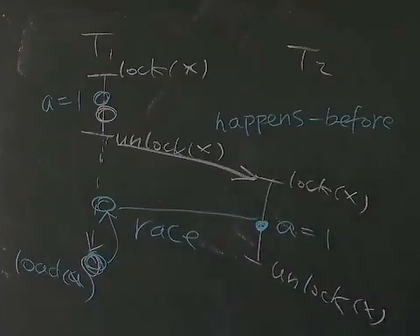 T1
T2
lock(x)
a=1
happens-before
unlock(x)
lock(x)
race
a=1
load(a)
unlock(x)